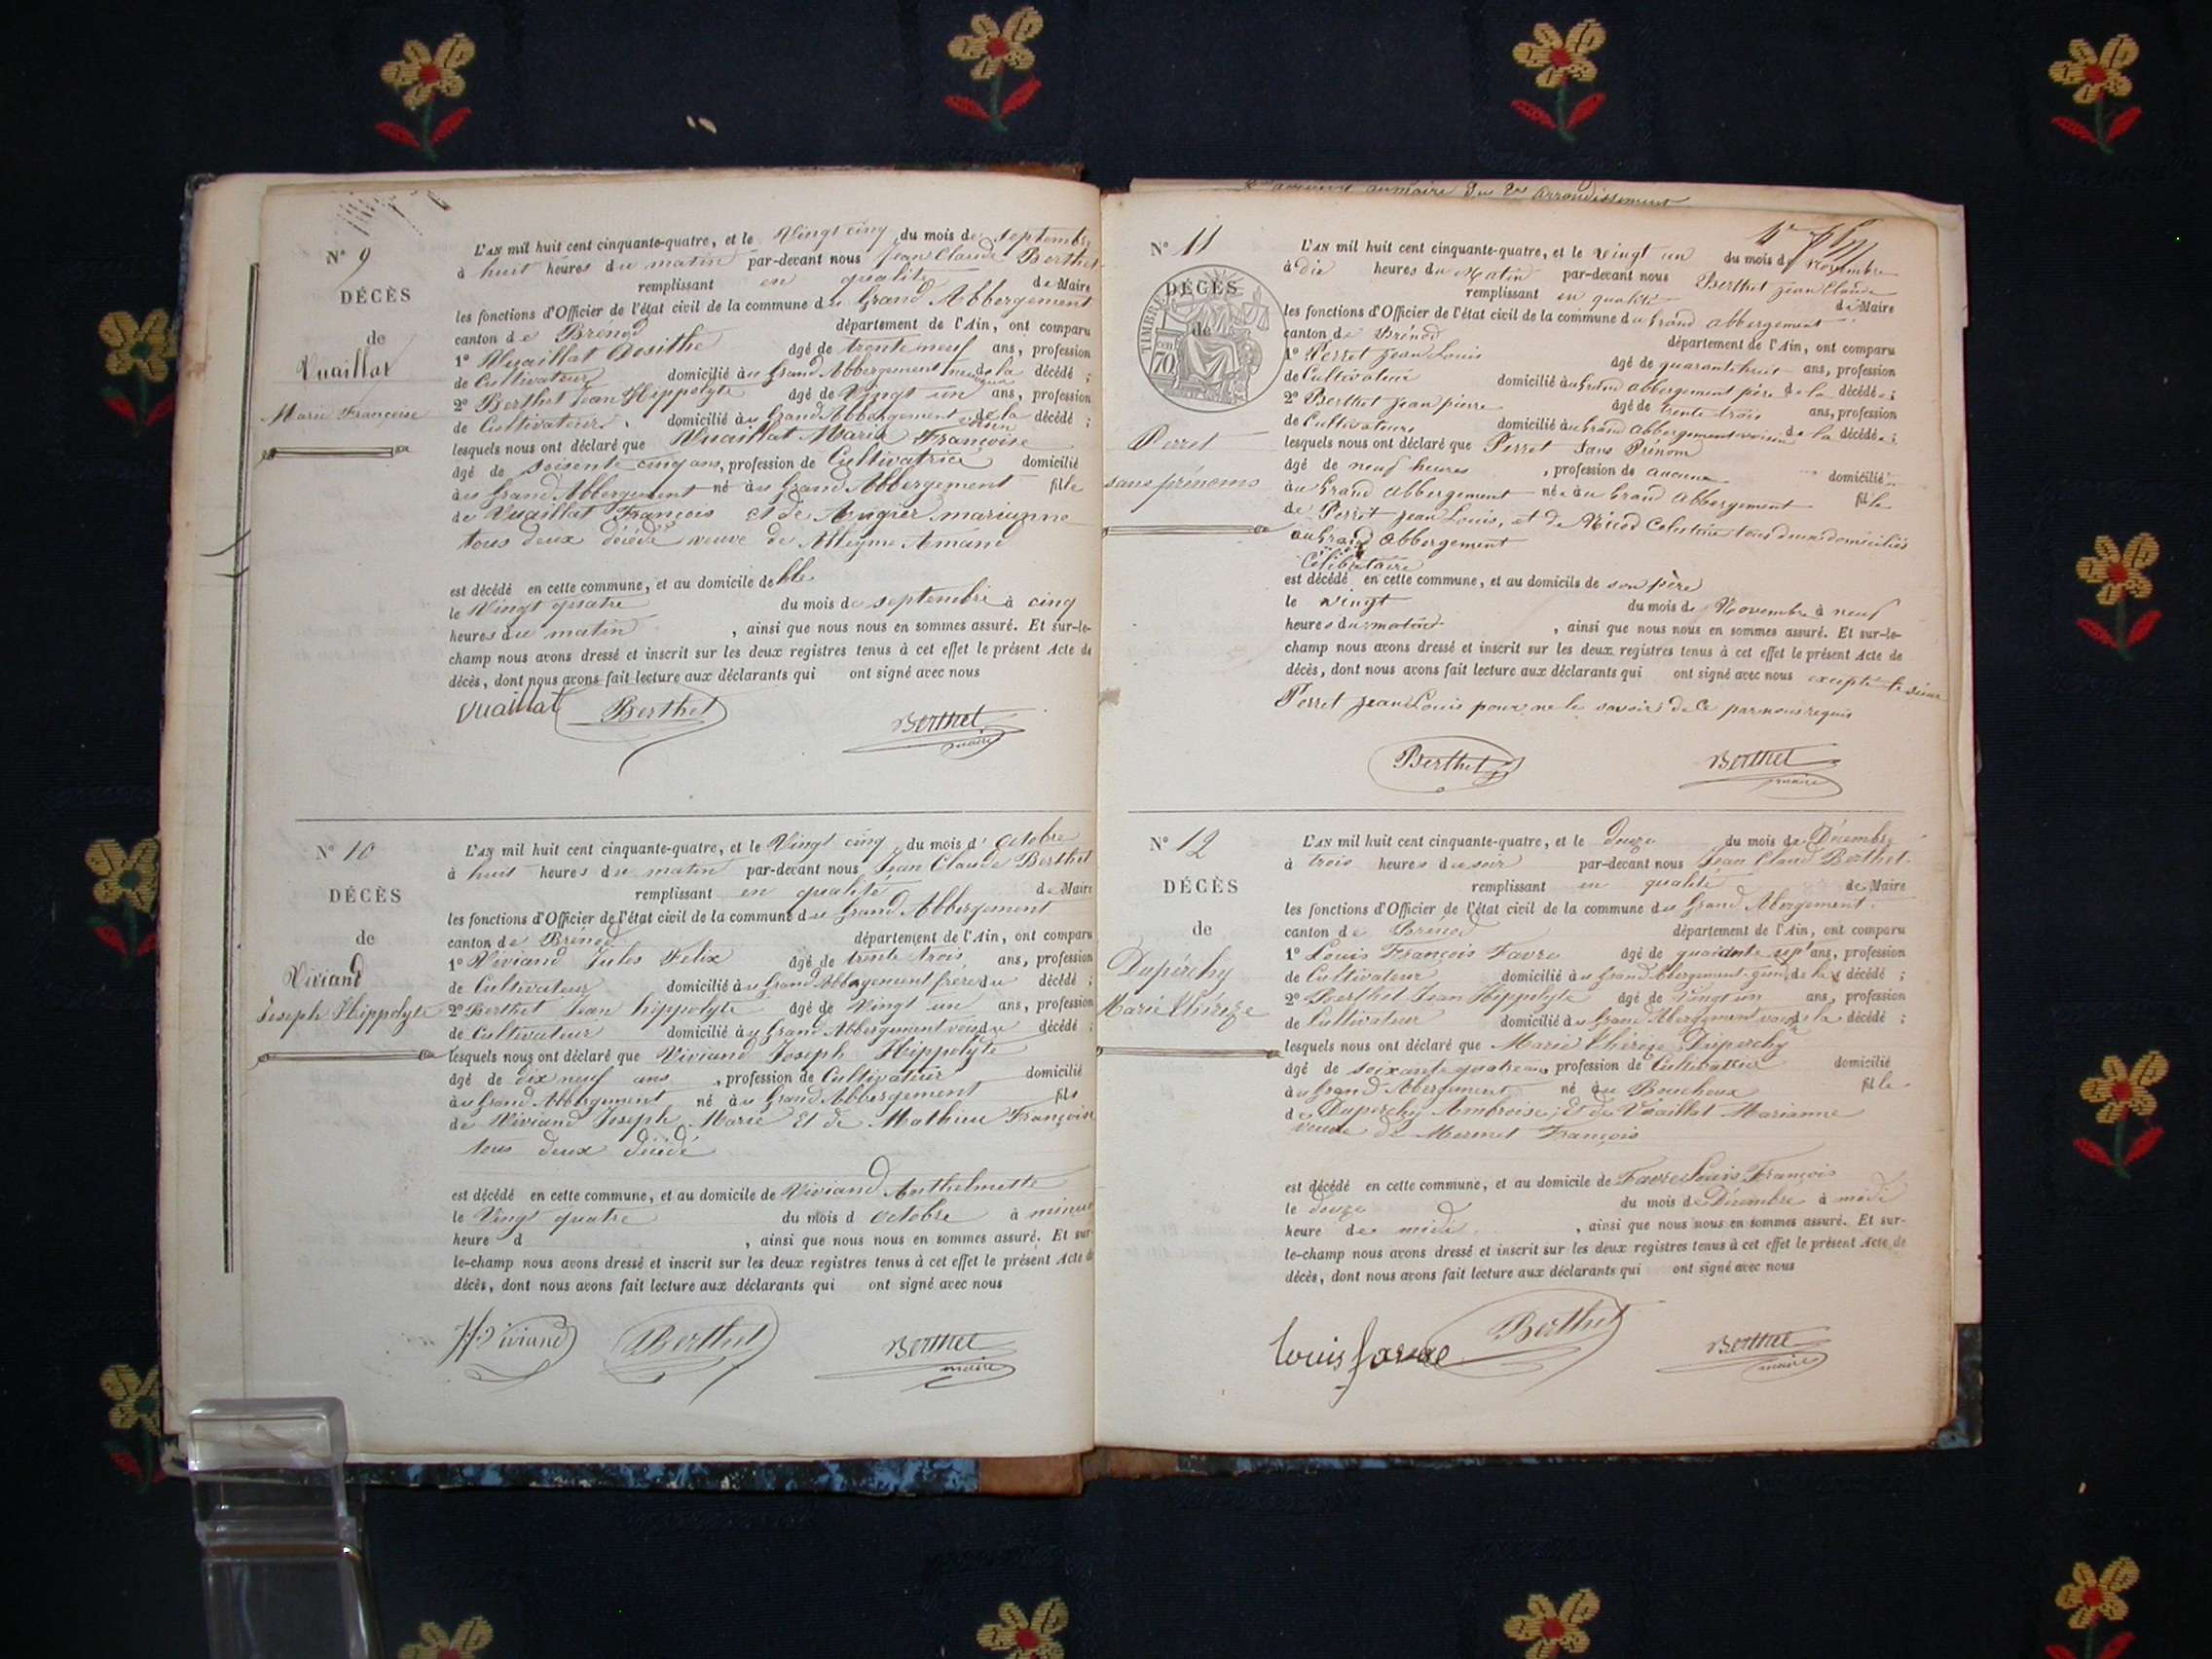 N° 9
DÉCÈS
de
Vuaillat
Marie Françoise
L'AN mil huit cent cinquante-quatre, et le Vingt cinq du mois de septembre
à huit heures du matin par-devant nous Jean Claude Berthet
remplissant en qualité de Maire
les fonctions d'Officier de l'état civil de la commune du Grand Abbergement
canton de Brénod département de l'Ain, ont comparu
1° Vuaillat Dosithe âgé de trente neuf ans, profession
de Cultivateur domicilié au Grand Abbergement neveu de la décédé ;
2° Berthet Jean Hippolyte âgé de Vingt un ans, profession
de Cultivateur domicilié au Grand Abbergement voisin de la décédé ;
lesquels nous ont déclaré que Vuaillat Marie Françoise
âgé de soisente cinq ans, profession de Cultivatrice domicilié
au Grand Abbergement né au Grand Abbergement fille
de Vuaillat François et de Augier marianne
tous deux décédé veuve de Alleyme Amand
est décédé en cette commune, et au domicile de elle
le Vingt quatre du mois de septembre à cinq
heures du matin , ainsi que nous nous en sommes assuré. Et sur-le-
champ nous avons dressé et inscrit sur les deux registres tenus à cet effet le présent Acte de
décès, dont nous avons fait lecture aux déclarants qui ont signé avec nous
Vuaillat Berthet Berthet
maire
N° 10
DÉCÈS
de
Viviand
Joseph Hippolyte
L'AN mil huit cent cinquante-quatre, et le Vingt cinq du mois d'octobre
à huit heures du matin par-devant nous Jean Claude Berthet
remplissant en qualité de Maire
les fonctions d'Officier de l'état civil de la commune du Grand Abbergement
canton de Brénod département de l'Ain, ont comparu
1° Viviand Jules Felix âgé de trente trois ans, profession
de Cultivateur domicilié au Grand Abbergement frère du décédé ;
2° Berthet Jean hippolyte âgé de Vingt un ans, profession
de Cultivateur domicilié au Grand Abbergement voisin du décédé ;
lesquels nous ont déclaré que Viviand Joseph Hippolyte
âgé de dix neuf ans , profession de Cultivateur domicilié
au Grand Abbergement né au Grand Abbergement fils
de Viviand Joseph Marie Et de Mathieu Françoise
tous deux décédé
est décédé en cette commune, et au domicile de Viviand Anthelmette
le Vingt quatre du mois d octobre à minui
heure d , ainsi que nous nous en sommes assuré. Et sur-
le-champ nous avons dressé et inscrit sur les deux registres tenus à cet effet le présent Acte de
décès, dont nous avons fait lecture aux déclarants qui ont signé avec nous
Viviand Berthet Berthet
maire
arrondissement
N° 11
DÉCÈS
de
TIMBRE
70
Perret
sans prénoms
L'AN mil huit cent cinquante-quatre, et le vingt un du mois de Novembre
à dix heures du Matin par-devant nous Berthet jean Claude
remplissant en qualité de Maire
les fonctions d'Officier de l'état civil de la commune du Grand abbergement
canton de Brénod département de l'Ain, ont comparu
1° Perret jean Louis âgé de quarante huit ans, profession
de Cultivateur domicilié au Grand abbergement père de la décédée ;
2° Berthet jean pierre âgé de trente trois ans, profession
de Cultivateur domicilié au Grand abbergement voisin de la décédée ;
lesquels nous ont déclaré que Perret Sans Prénom
âgé de neuf heures , profession de aucune domicilié
au Grand abbergement née au Grand abbergement fille
de Perret jean Louis, et de Nicod Celestine tous deux domiciliés
au Grand abbergement
Célibataire
est décédé en cette commune, et au domicile de son père
le vingt du mois de Novembre à neuf
heures du matin , ainsi que nous nous en sommes assuré. Et sur-le-
champ nous avons dressé et inscrit sur les deux registres tenus à cet effet le présent Acte de
décès, dont nous avons fait lecture aux déclarants qui ont signé avec nous excepté le sieur
Perret jean Louis pour ne le savoir de ce par nous requis
Berthet Berthet
maire
N° 12
DÉCÈS
de
Dupérchy
Marie Thérèze
L'AN mil huit cent cinquante-quatre, et le douze du mois de Décembre
à trois heures du soir par-devant nous Jean Claud Berthet
remplissant en qualité de Maire
les fonctions d'Officier de l'état civil de la commune du Grand Abergement
canton de Brénod département de l'Ain, ont comparu
1° Louis François Favre âgé de quarante sept ans, profession
de Cultivateur domicilié au Grand Abergement de la décédé ;
2° Berthet Jean Hippolyte âgé de Vingt un ans, profession
de Cultivateur domicilié au Grand Abergement voisin de la décédé ;
lesquels nous ont déclaré que Marie Thérèse Dupérchy
âgé de soixante quatre ans profession de Cultivatrice domicilié
au Grand Abergement né au Boucheux fille
de Dupérchy Ambroise, et de Vuaillat Marianne
veuve de Mermet François
est décédé en cette commune, et au domicile de Favre Louis François
le douze du mois de Décembre à midi
heure de midi , ainsi que nous nous en sommes assuré. Et sur-
le-champ nous avons dressé et inscrit sur les deux registres tenus à cet effet le présent Acte de
décès, dont nous avons fait lecture aux déclarants qui ont signé avec nous
Louis favre Berthet Berthet
maire